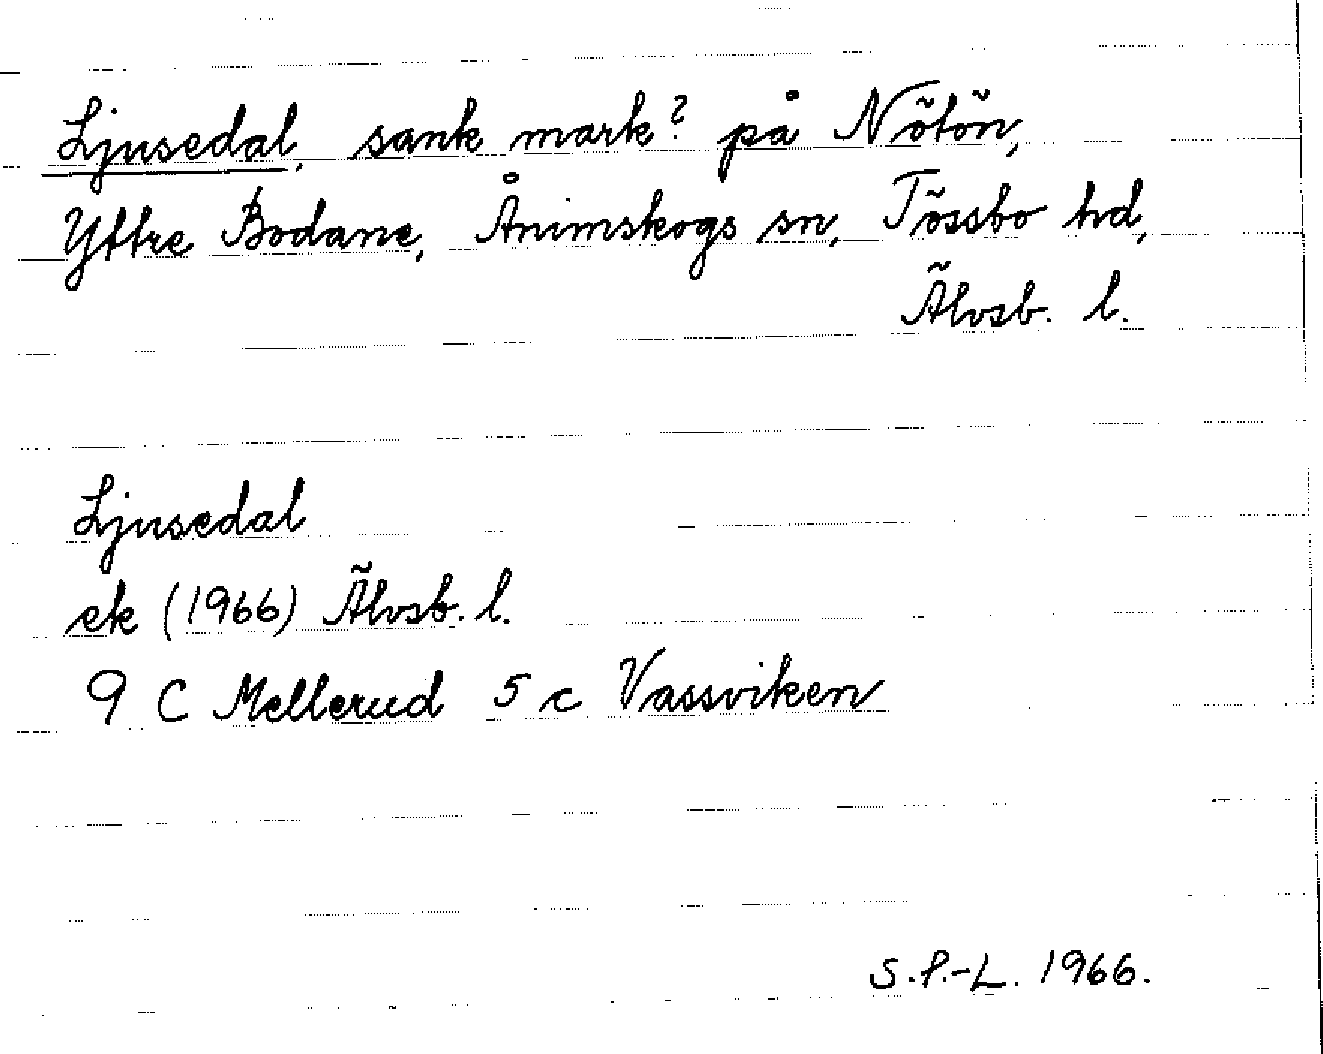 Ljusedal, sank mark? på Nötön,
Yttre Bodane, Ånimskogs sn, Tössbo hd,
Älvsb. l.
Ljusedal
ek (1966) Älvsb. l.
9 C Mellerud 5 c Vassviken
S.P.-L. 1966.